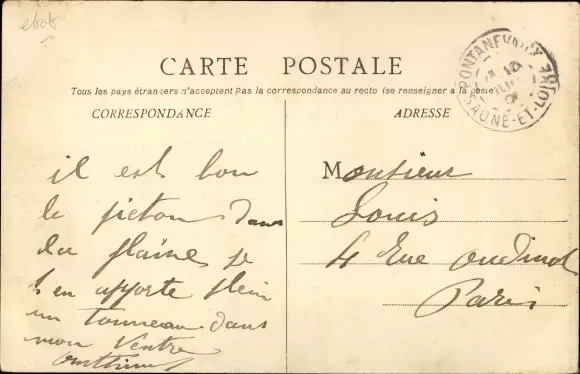 etat
CARTE POSTALE
Tous les pays étrangers n'acceptent pas la correspondance au recto (se renseigner à la poste)
CORRESPONDANCE
ADRESSE
PONTANEVAUX
SAONE-ET-LOIRE
il est bon
le picton dans
la plaine je
t'en apporte plein
un tonneau dans
mon ventre
Monsieur
Louis
4 Rue Oudinot
Paris